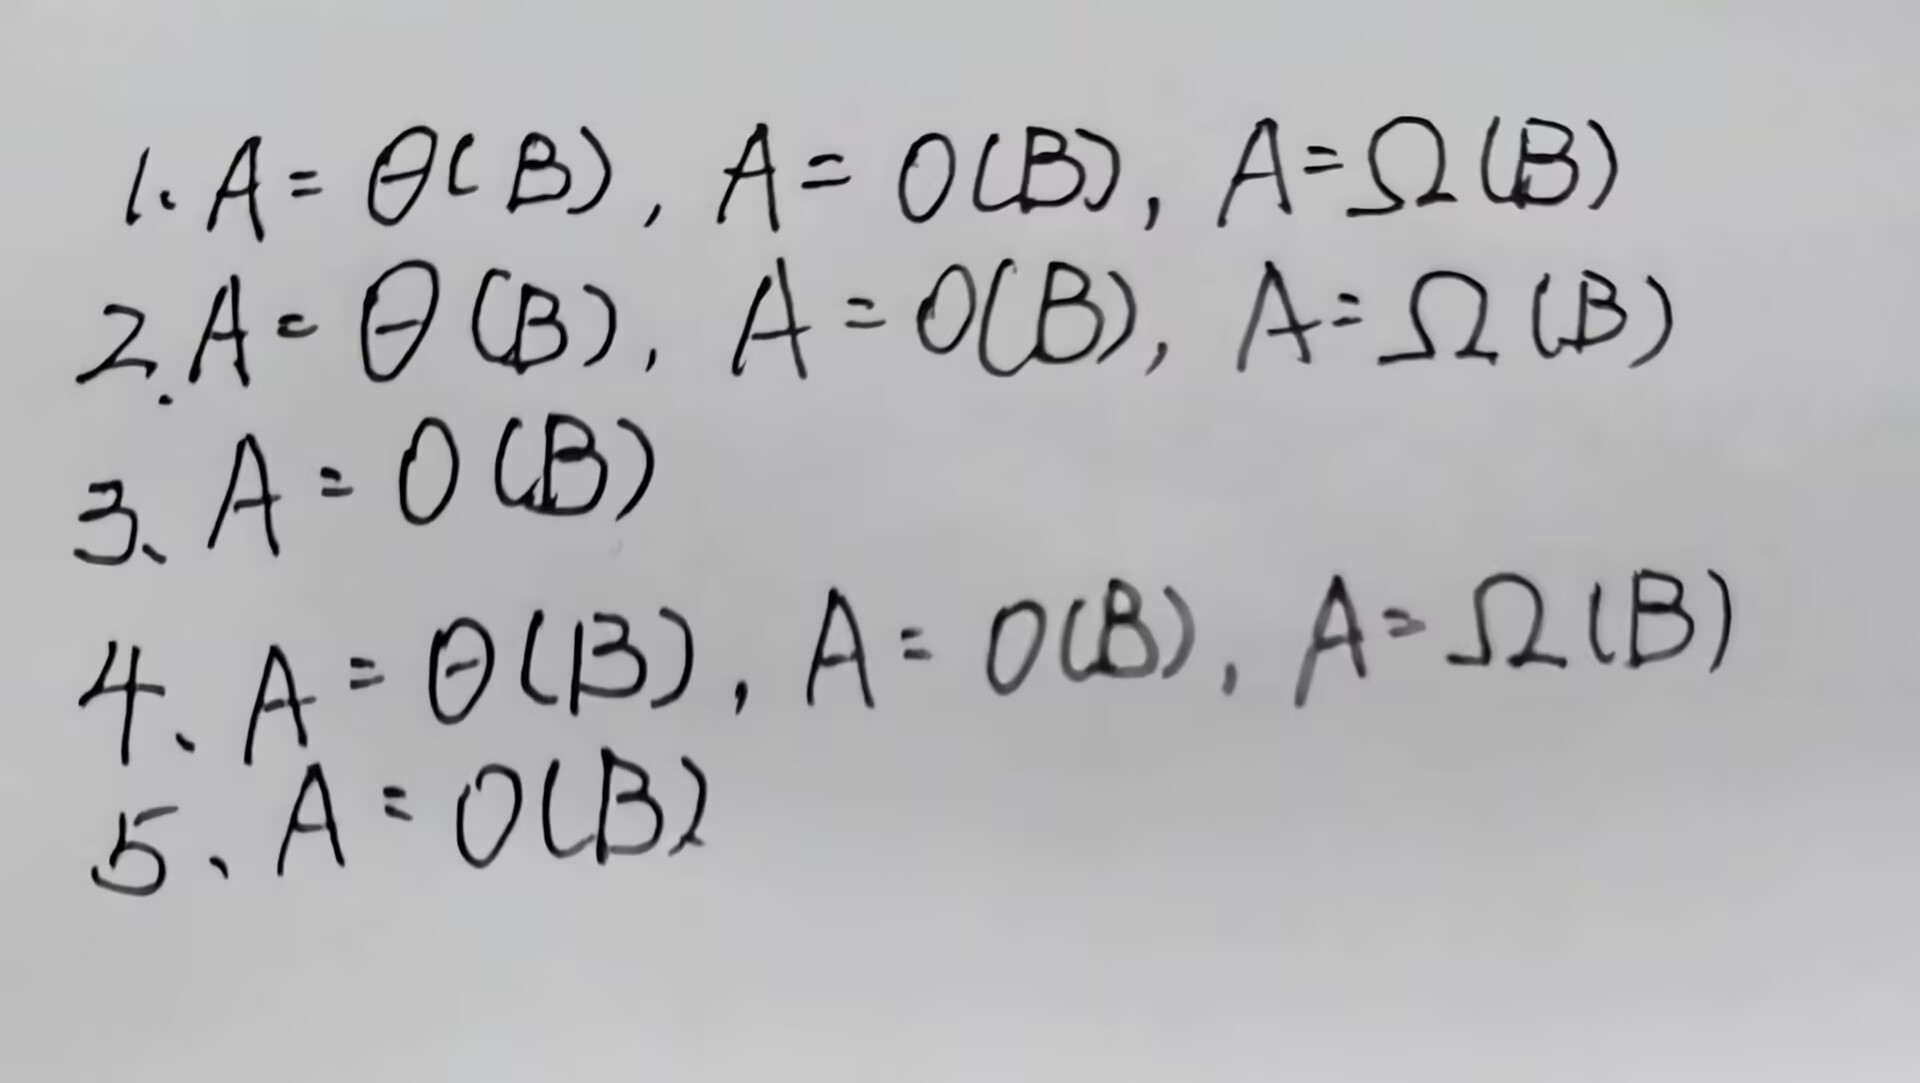 1. A = θ(B), A = O(B), A = Ω(B)
2. A = θ(B), A = O(B), A = Ω(B)
3、A = O(B)
4、A = θ(B), A = O(B), A = Ω(B)
5、A = O(B)